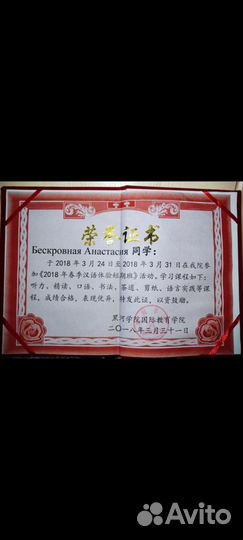 荣誉证书
Бескровная Анастасия 同学：
于 2018 年 3 月 24 日至 2018 年 3 月 31 日在我院参
加《2018 年春季汉语体验短期班》活动。学习课程如下：
听力、精读、口语、书法、茶道、剪纸、语言实践等课
程，成绩合格，表现优异，特发此证，以资鼓励。
黑河学院国际教育学院
二〇一八年三月三十一日
Avito